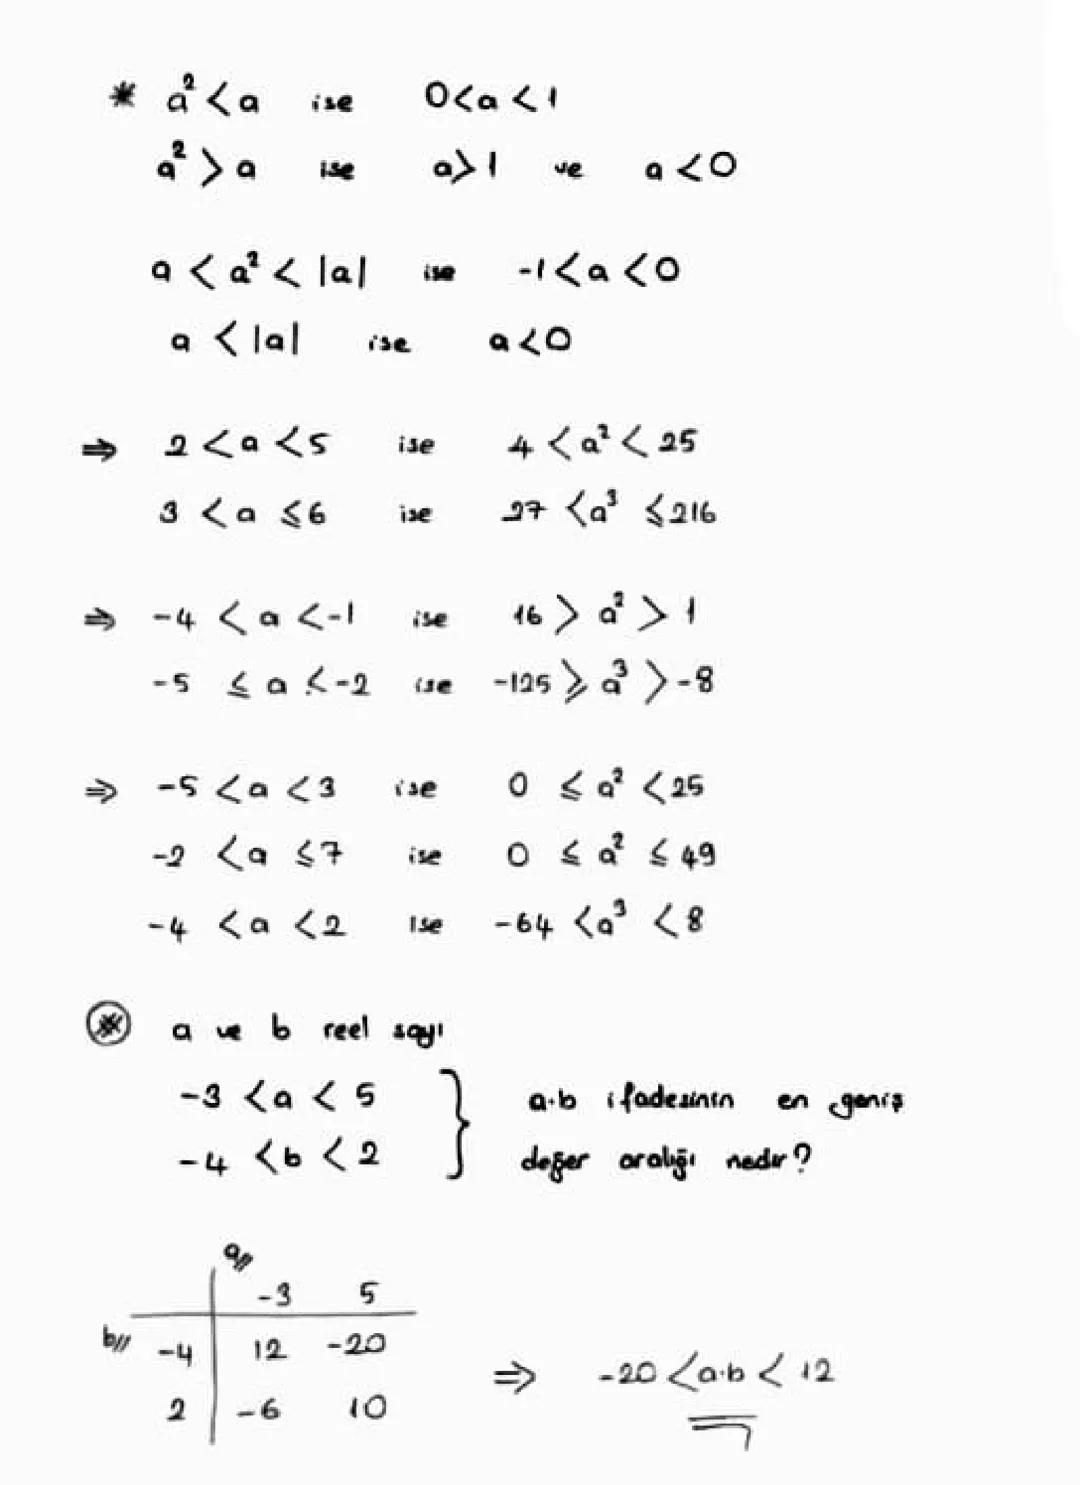 * a² < a ise 0 < a < 1
a² > a ise a > 1 ve a < 0
a < a² < |a| ise -1 < a < 0
a < |a| ise a < 0
⇒ 2 < a < 5 ise 4 < a² < 25
3 < a ≤ 6 ise 27 < a³ ≤ 216
⇒ -4 < a < -1 ise 16 > a² > 1
-5 ≤ a < -2 ise -125 ≥ a³ > -8
⇒ -5 < a < 3 ise 0 ≤ a² < 25
-2 < a ≤ 7 ise 0 ≤ a² ≤ 49
-4 < a < 2 ise -64 < a³ < 8
* a ve b reel sayı
-3 < a < 5 } a·b ifadesinin en geniş
-4 < b < 2 değer aralığı nedir?
a//
-3 5
b// -4 12 -20 ⇒ -20 < a·b < 12
2 -6 10